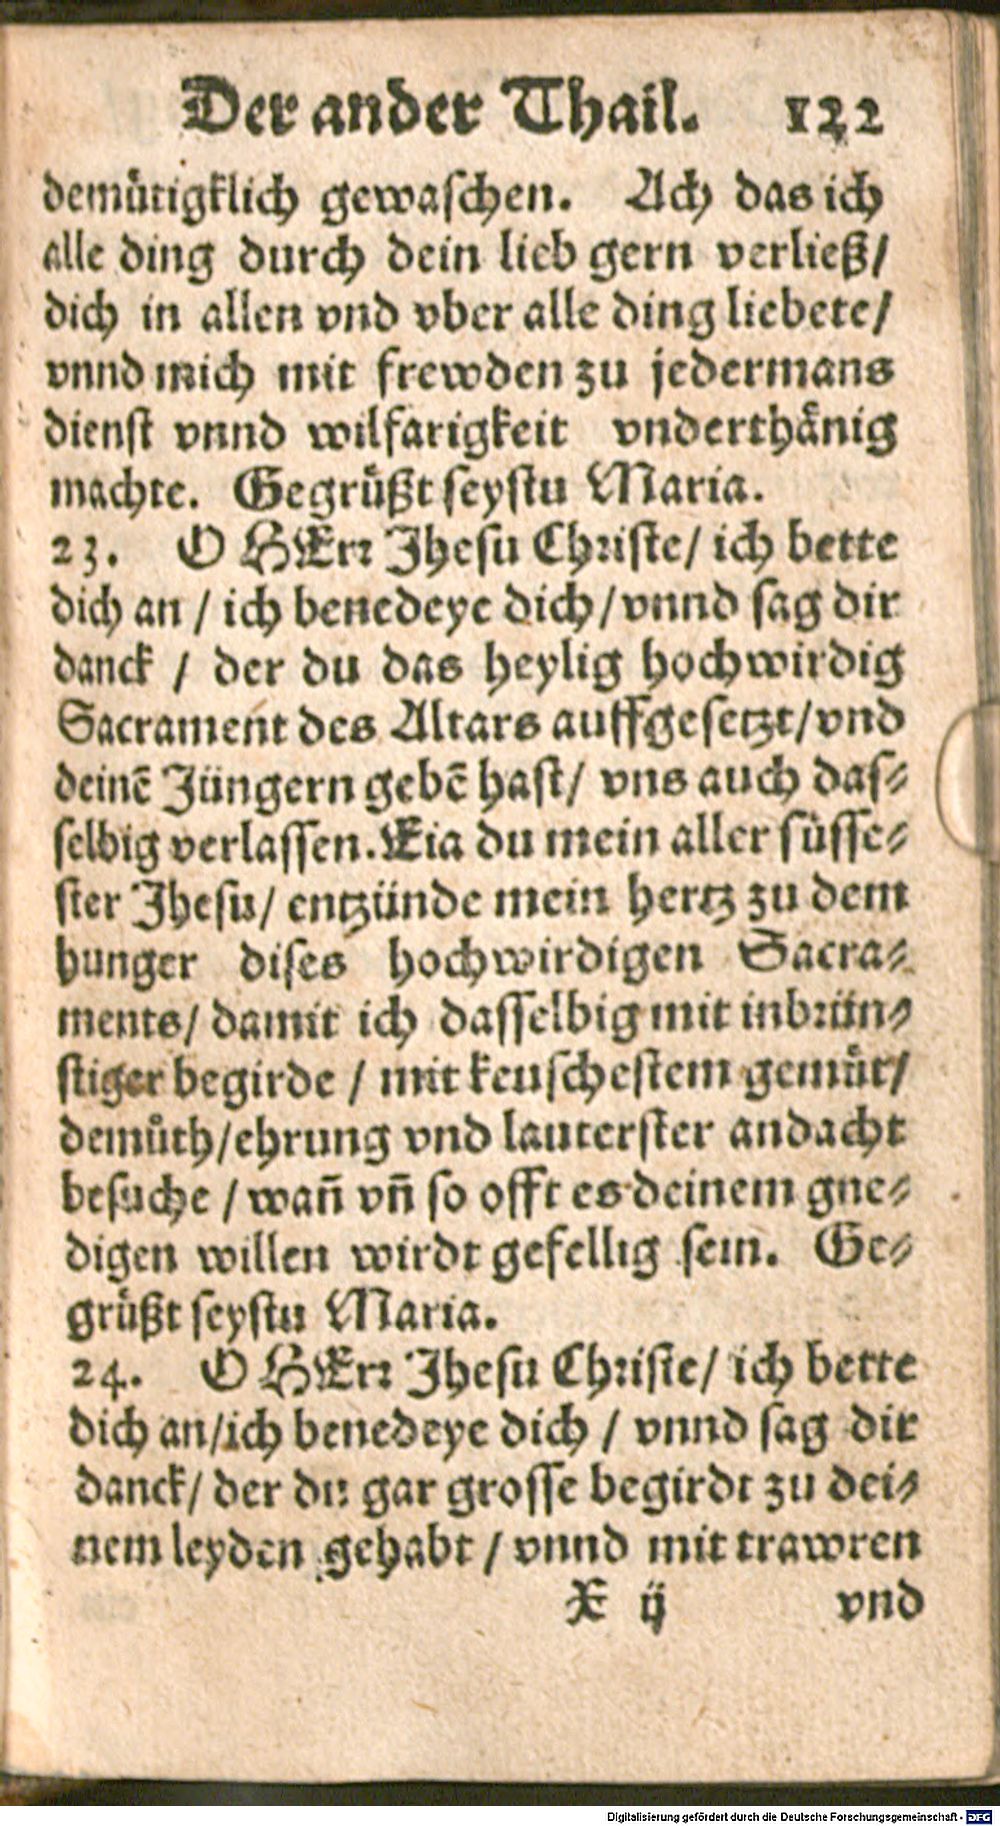 Der ander Thail. 122
demůtigklich gewaschen. Ach das ich
alle ding durch dein lieb gern verließ/
dich in allen vnd vber alle ding liebete/
vnnd mich mit frewden zu jedermans
dienst vnnd wilfarigkeit vnderthänig
machte. Gegrůßt seystu Maria.
23. O HErr Jhesu Christe/ ich bette
dich an / ich benedeye dich / vnnd sag dir
danck / der du das heylig hochwirdig
Sacrament des Altars auffgesetzt/ vnd
deinē Jüngern gebē hast/ vns auch das-
selbig verlassen. Eia du mein aller süsse-
ster Jhesu/ entzünde mein hertz zu dem
hunger dises hochwirdigen Sacra-
ments/ damit ich dasselbig mit inbrün-
stiger begirde / mit keuschestem gemůt/
demůth/ ehrung vnd lauterster andacht
besuche / wañ vñ so offt es deinem gne-
digen willen wirdt gefellig sein. Ge-
grůßt seystu Maria.
24. O HErr Jhesu Christe/ ich bette
dich an/ ich benedeye dich / vnnd sag dir
danck/ der du gar grosse begirdt zu dei-
nem leyden gehabt / vnnd mit trawren
X ij vnd
Digitalisierung gefördert durch die Deutsche Forschungsgemeinschaft - DFG